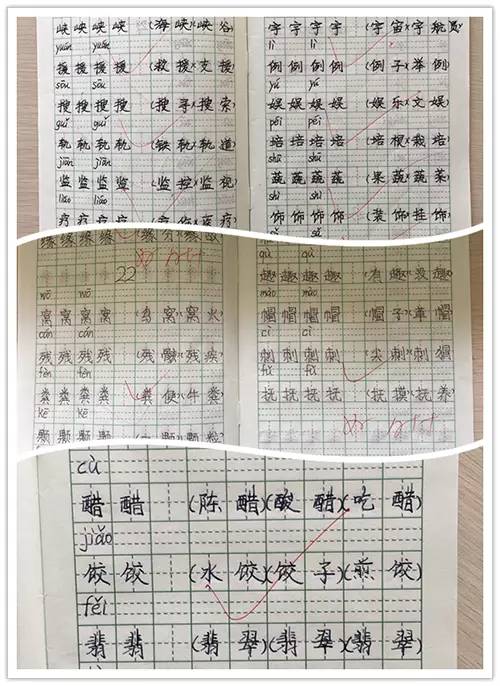 峡 峡 峡 峡 (海 峡)(峡 谷)
yuán yuán
援 援 援 援 (救 援)(支 援)
sōu sōu
搜 搜 搜 搜 (搜 寻)(搜 索)
guǐ guǐ
轨 轨 轨 轨 (铁 轨)(轨 道)
jiān jiān
监 监 监 监 (监 控)(监 视)
liáo liáo
疗 疗 疗 疗 疗)
宇 宇 宇 宇 (宇 宙)(宇 航 员)
lì lì
例 例 例 例 (例 子)(举 例)
yú yú
娱 娱 娱 娱 (娱 乐)(文 娱)
péi péi
培 培 培 培 (培 根)(栽 培)
shū shū
蔬 蔬 蔬 蔬 (果 蔬)(蔬 菜)
shì shì
饰 饰 饰 饰 (装 饰)(挂 饰)
sū sū
缘 缘 缘 缘
22
wō wō
窝 窝 窝 窝 窝)
cán cán
残 残 残 残 (残 (残 疾)
fèn fèn
粪 粪 粪 粪 (粪 便)(牛 粪)
kē kē
颗 颗 颗 颗 颗)(颗 粒)
qù qù
趣 趣 趣 趣 (有 趣)(没 趣)
mào mào
帽 帽 帽 帽 (帽 子)(草 帽)
cì cì
刺 刺 刺 刺 (尖 刺)(刺 猬)
fǔ fǔ
抚 抚 抚 抚 (抚 摸)(抚 养)
cù
醋 醋 (陈 醋)(酸 醋)(吃 醋)
jiǎo
饺 饺 (水 饺)(饺 子)(煎 饺)
fěi
翡 翡 (翡 翠)(翡 翠)(翡 翠)